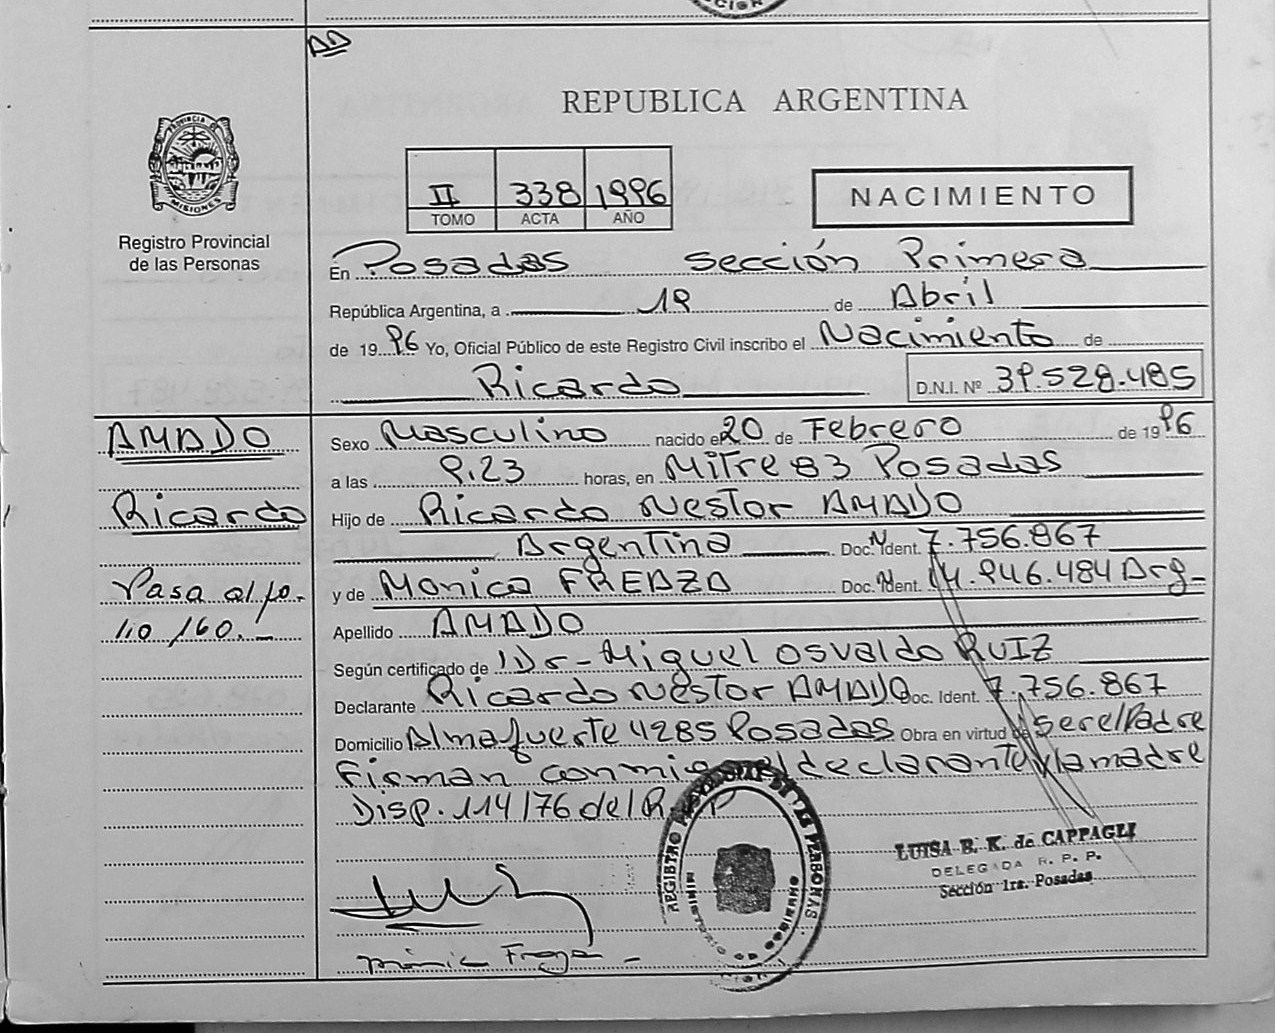 REPUBLICA ARGENTINA
PROVINCIA DE
MISIONES
Registro Provincial
de las Personas
II 338 1996
TOMO ACTA AÑO
NACIMIENTO
En Posadas Sección Primera
República Argentina, a 19 de Abril
de 1996 Yo, Oficial Público de este Registro Civil inscribo el Nacimiento de
Ricardo D.N.I. Nº 39.528.485
AMADO
Sexo Masculino nacido el 20 de Febrero de 1996
a las 9.23 horas, en Mitre 83 Posadas
Ricardo
Hijo de Ricardo Nestor AMADO
Argentina Doc. Ident. 7.756.867
Pasa al fo-
y de Monica Doc. Ident. 14.946.484 Arg-
lio 160.-
Apellido AMADO
Según certificado de Dr- Miguel Osvaldo RUIZ
Declarante Ricardo Nestor AMADO Doc. Ident. 7.756.867
Domicilio Almafuerte 4285 Posadas Obra en virtud de ser el Padre
Firman conmigo el declarante y la madre
Disp. 114/76 del R.P.P
LUISA B. K. de CAPPAGLI
DELEGADA R. P. P.
Sección 1ra. Posadas
REGISTRO PROVINCIAL DE LAS PERSONAS
MINISTERIO DE GOBIERNO